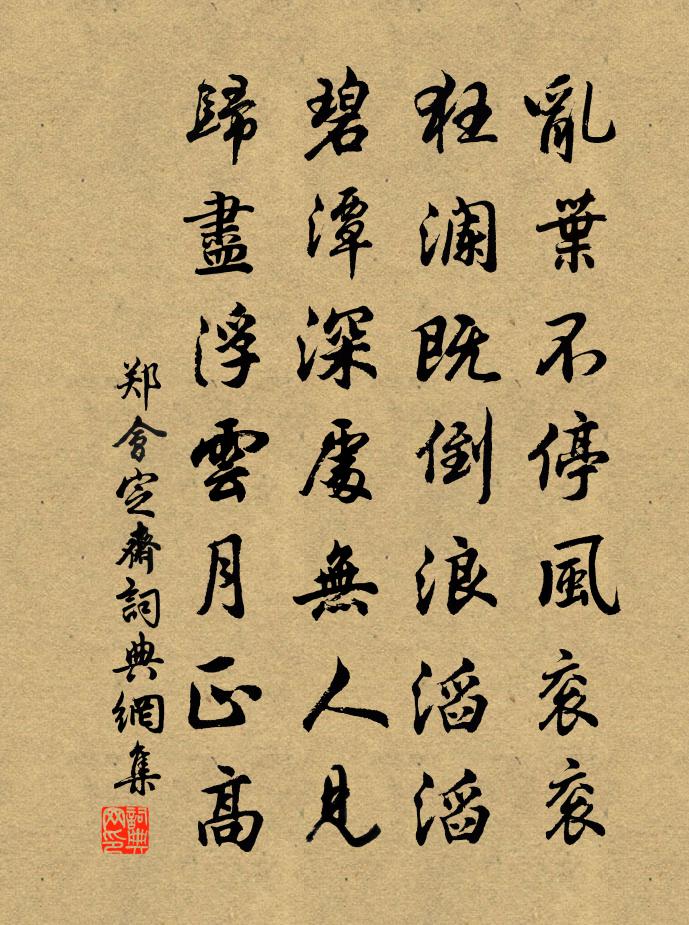 亂葉不停風衮衮
狂瀾既倒浪滔滔
碧潭深處無人見
歸盡浮雲月正高
郑會定齋詞典網集
詞典網印